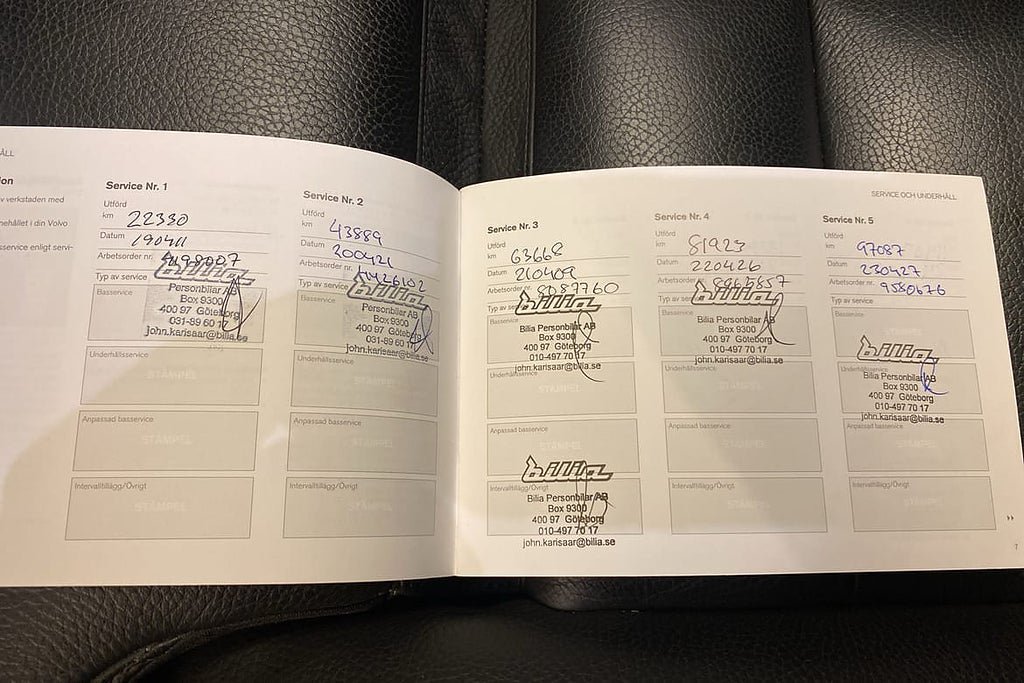 ÅLL
ion
v verkstaden med
nehållet i din Volvo
service enligt servi-
Service Nr. 1
Utförd
km 22330
Datum 190411
Arbetsorder nr.
Typ av service
bilia
Basservice
Personbilar AB
Box 9300
400 97 Göteborg
031-89 60 17
john.karisaar@bilia.se
Underhållsservice
STÄMPEL
Anpassad basservice
STÄMPEL
Intervalltillägg/Övrigt
STÄMPEL
Service Nr. 2
Utförd
km 43889
Datum 200421
Arbetsorder nr.
Typ av service
bilia
Basservice
Personbilar AB
Box 9300
400 97 Göteborg
031-89 60
john.karisaar@bilia.se
Underhållsservice
STÄMPEL
Anpassad basservice
STÄMPEL
Intervalltillägg/Övrigt
STÄMPEL
SERVICE OCH UNDERHÅLL
Service Nr. 3
Utförd
km 63668
Datum 210409
Arbetsorder nr. 8087760
Typ av service
bilia
Basservice
Bilia Personbilar AB
Box 9300
400 97 Göteborg
010-497 70 17
john.karisaar@bilia.se
Underhållsservice
Anpassad basservice
STÄMPEL
bilia
Intervalltillägg/Övrigt
Bilia Personbilar AB
Box 9300
400 97 Göteborg
010-497 70 17
john.karisaar@bilia.se
Service Nr. 4
Utförd
km 81923
Datum 220426
Arbetsorder nr. 8965857
Typ av service
bilia
Basservice
Bilia Personbilar AB
Box 9300
400 97 Göteborg
010-497 70 17
john.karisaar@bilia.se
Underhållsservice
STÄMPEL
Anpassad basservice
STÄMPEL
Intervalltillägg/Övrigt
STÄMPEL
Service Nr. 5
Utförd
km 97087
Datum 230427
Arbetsorder nr. 9580676
Typ av service
Basservice
STÄMPEL
bilia
Underhållsservice
Bilia Personbilar AB
Box 9300
400 97 Göteborg
010-497 70 17
john.karisaar@bilia.se
Anpassad basservice
STÄMPEL
Intervalltillägg/Övrigt
STÄMPEL
7